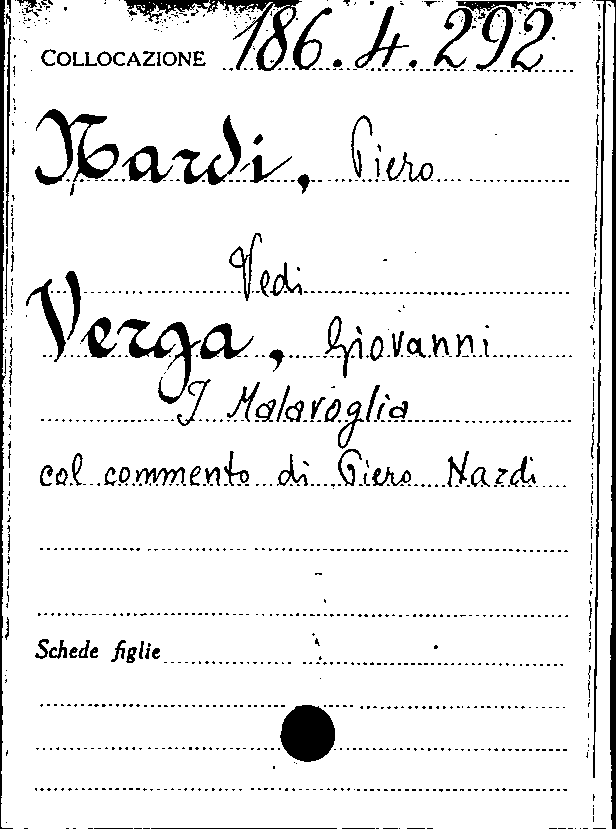 COLLOCAZIONE 186.4.292
Nardi, Piero
Vedi
Verga, Giovanni
I Malavoglia
col commento di Piero Nardi
Schede figlie